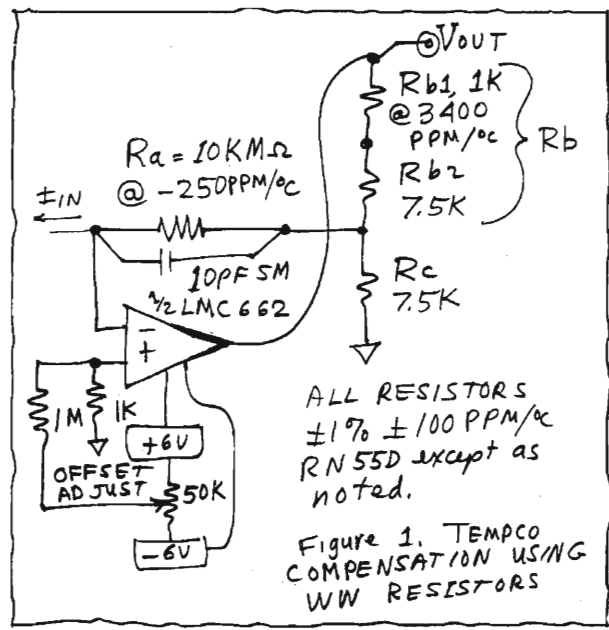 VOUT
Rb1, 1K
@ 3400
PPM/°C
Rb
Ra = 10KMΩ
@ -250PPM/°C
Rb2
7.5K
±IN
10PF 5M
1/2 LMC662
Rc
7.5K
-
+
1M
1K
+6V
OFFSET
ADJUST
50K
-6V
ALL RESISTORS
±1% ±100 PPM/°C
RN55D except as
noted.
Figure 1. TEMPCO
COMPENSATION USING
WW RESISTORS